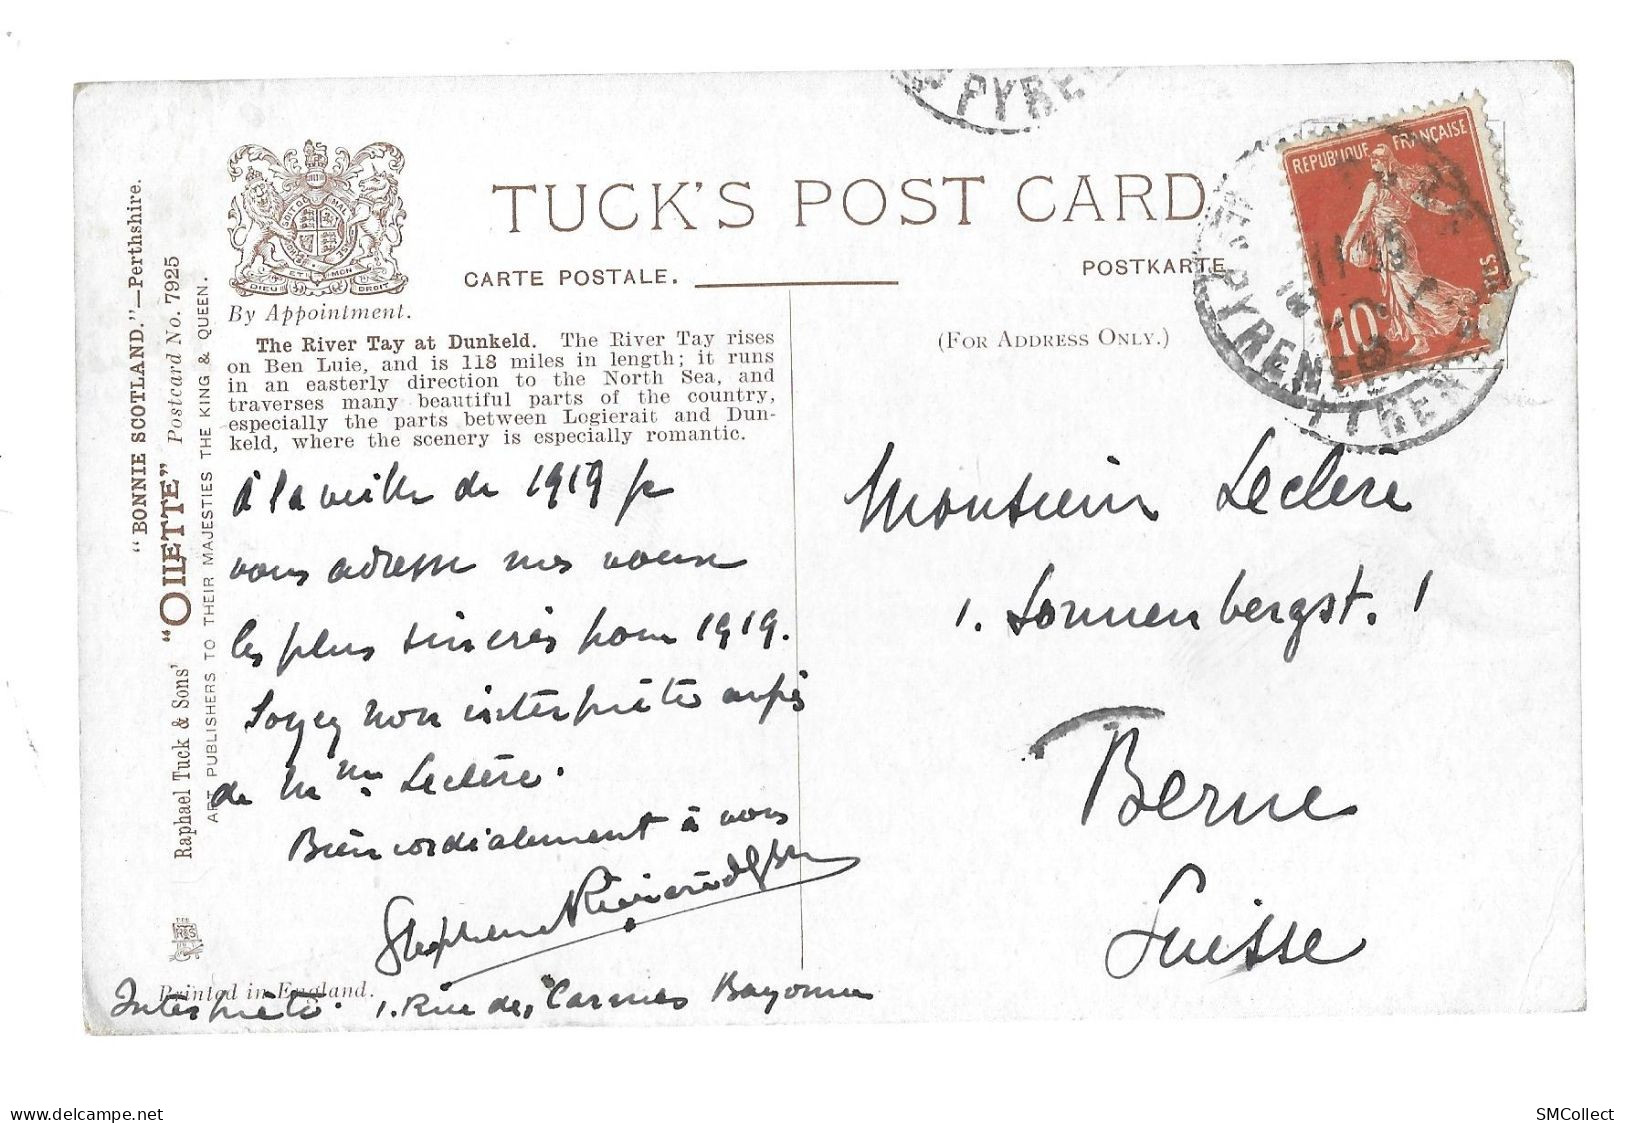 "BONNIE SCOTLAND."—Perthshire.
Raphael Tuck & Sons' "OILETTE" Postcard No. 7925
ART PUBLISHERS TO THEIR MAJESTIES THE KING & QUEEN.
DIEU ET MON DROIT
By Appointment.
TUCK'S POST CARD
CARTE POSTALE.
POSTKARTE
(FOR ADDRESS ONLY.)
The River Tay at Dunkeld. The River Tay rises
on Ben Luie, and is 118 miles in length; it runs
in an easterly direction to the North Sea, and
traverses many beautiful parts of the country,
especially the parts between Logierait and Dun-
keld, where the scenery is especially romantic.
REPUBLIQUE FRANÇAISE
10
PYRENEES
à la veille de 1919 je
vous adresse mes voeux
les plus sincères pour 1919.
Soyez mon interprète auprès
de Mme Leclère.
Bien cordialement à vous
Stephen
Interprète. 1. Rue des Carmes Bayonne
Monsieur Leclère
1. Sonnenbergst. 1
Berne
Suisse
Printed in England.
SMCollect
delcampe.net